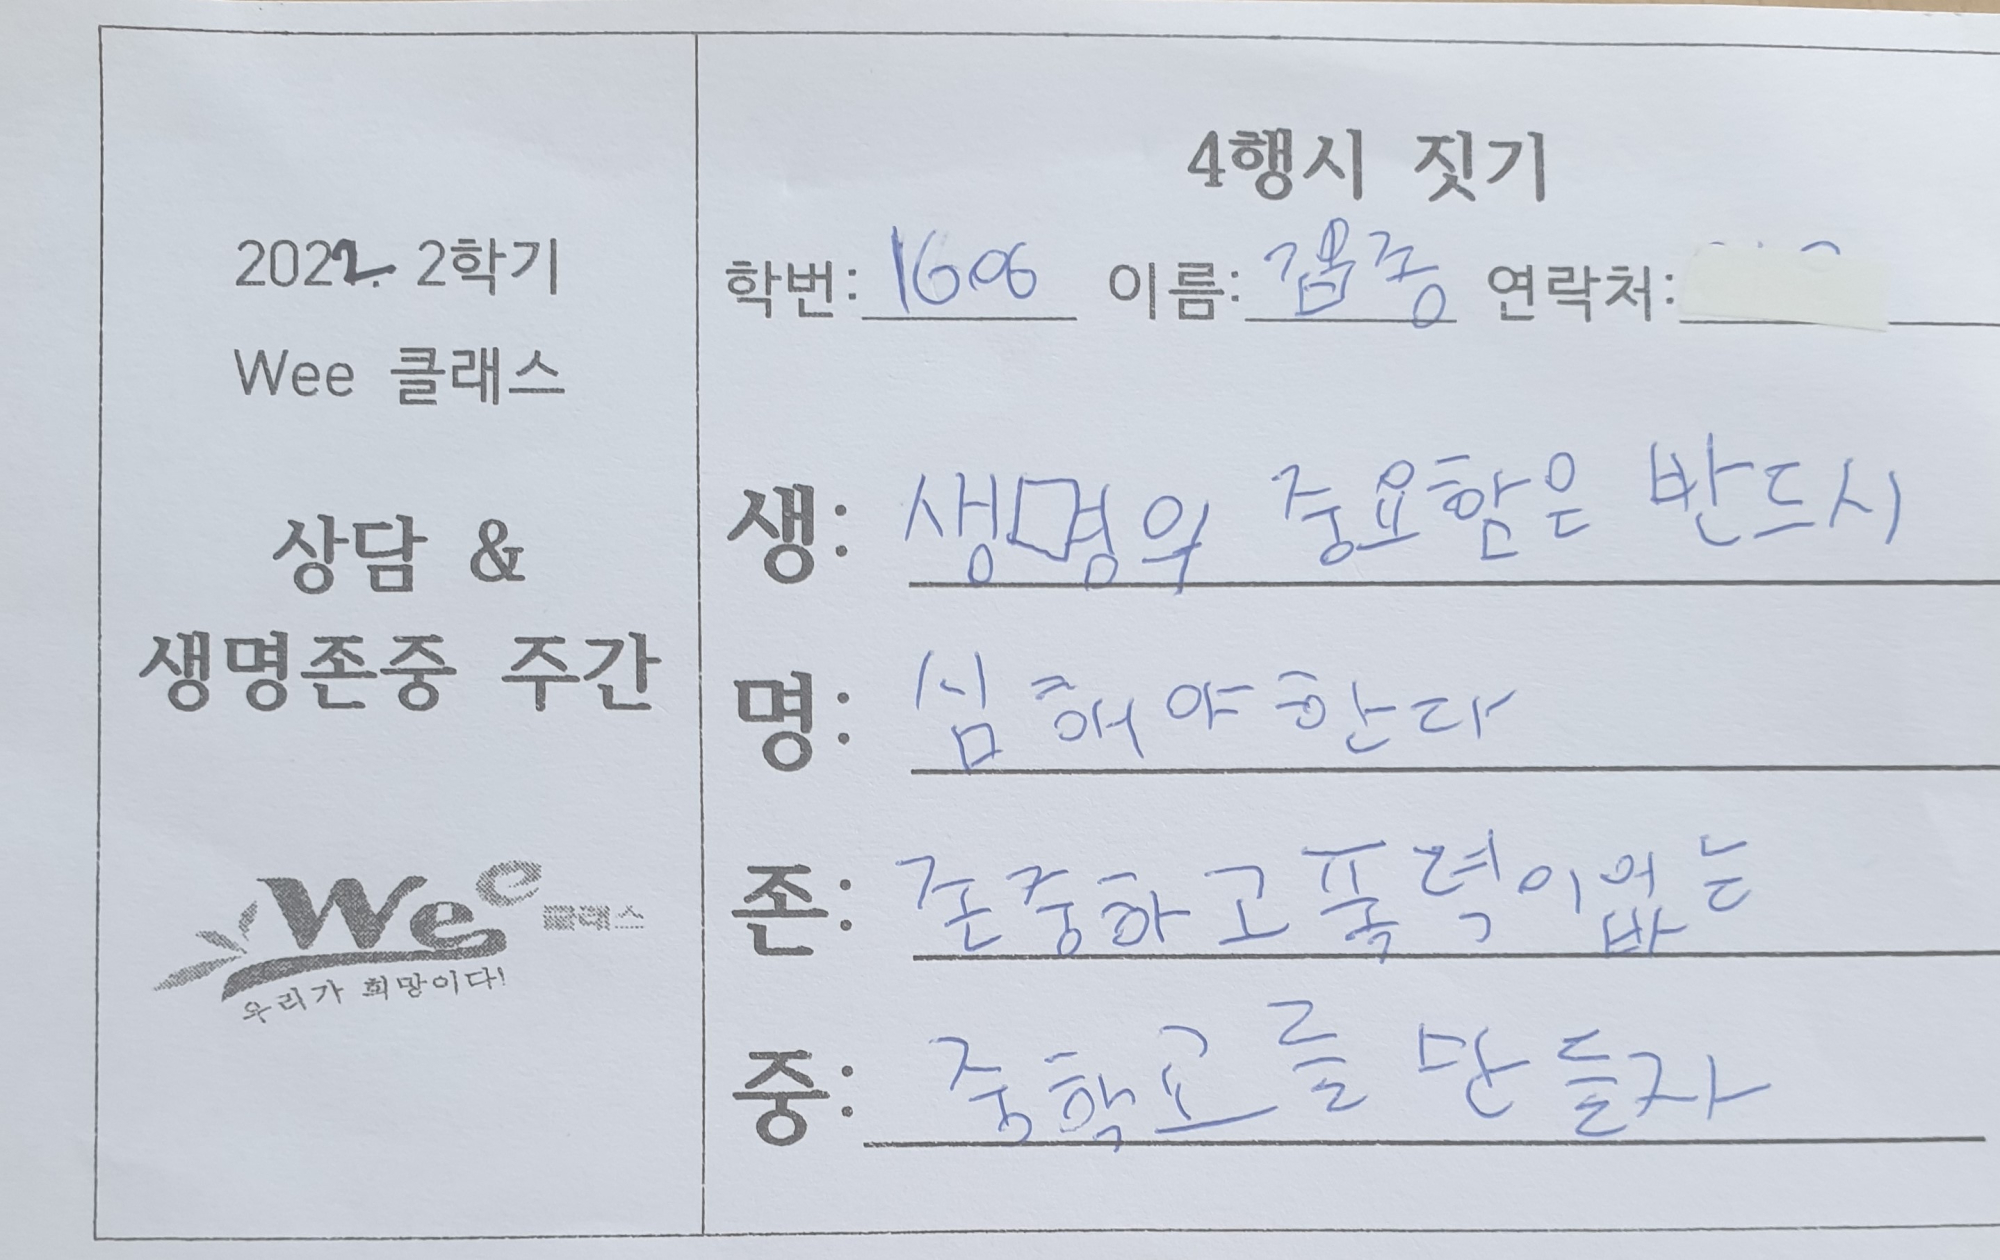 2022. 2학기
Wee 클래스
상담 &
생명존중 주간
Wee 클래스
우리가 희망이다!
4행시 짓기
학번: 1606 이름: 연락처:
생: 생명의 중요함은 반드시
명: 심해야한다
존: 존중하고 폭력이 없는
중: 중학교를 만들자